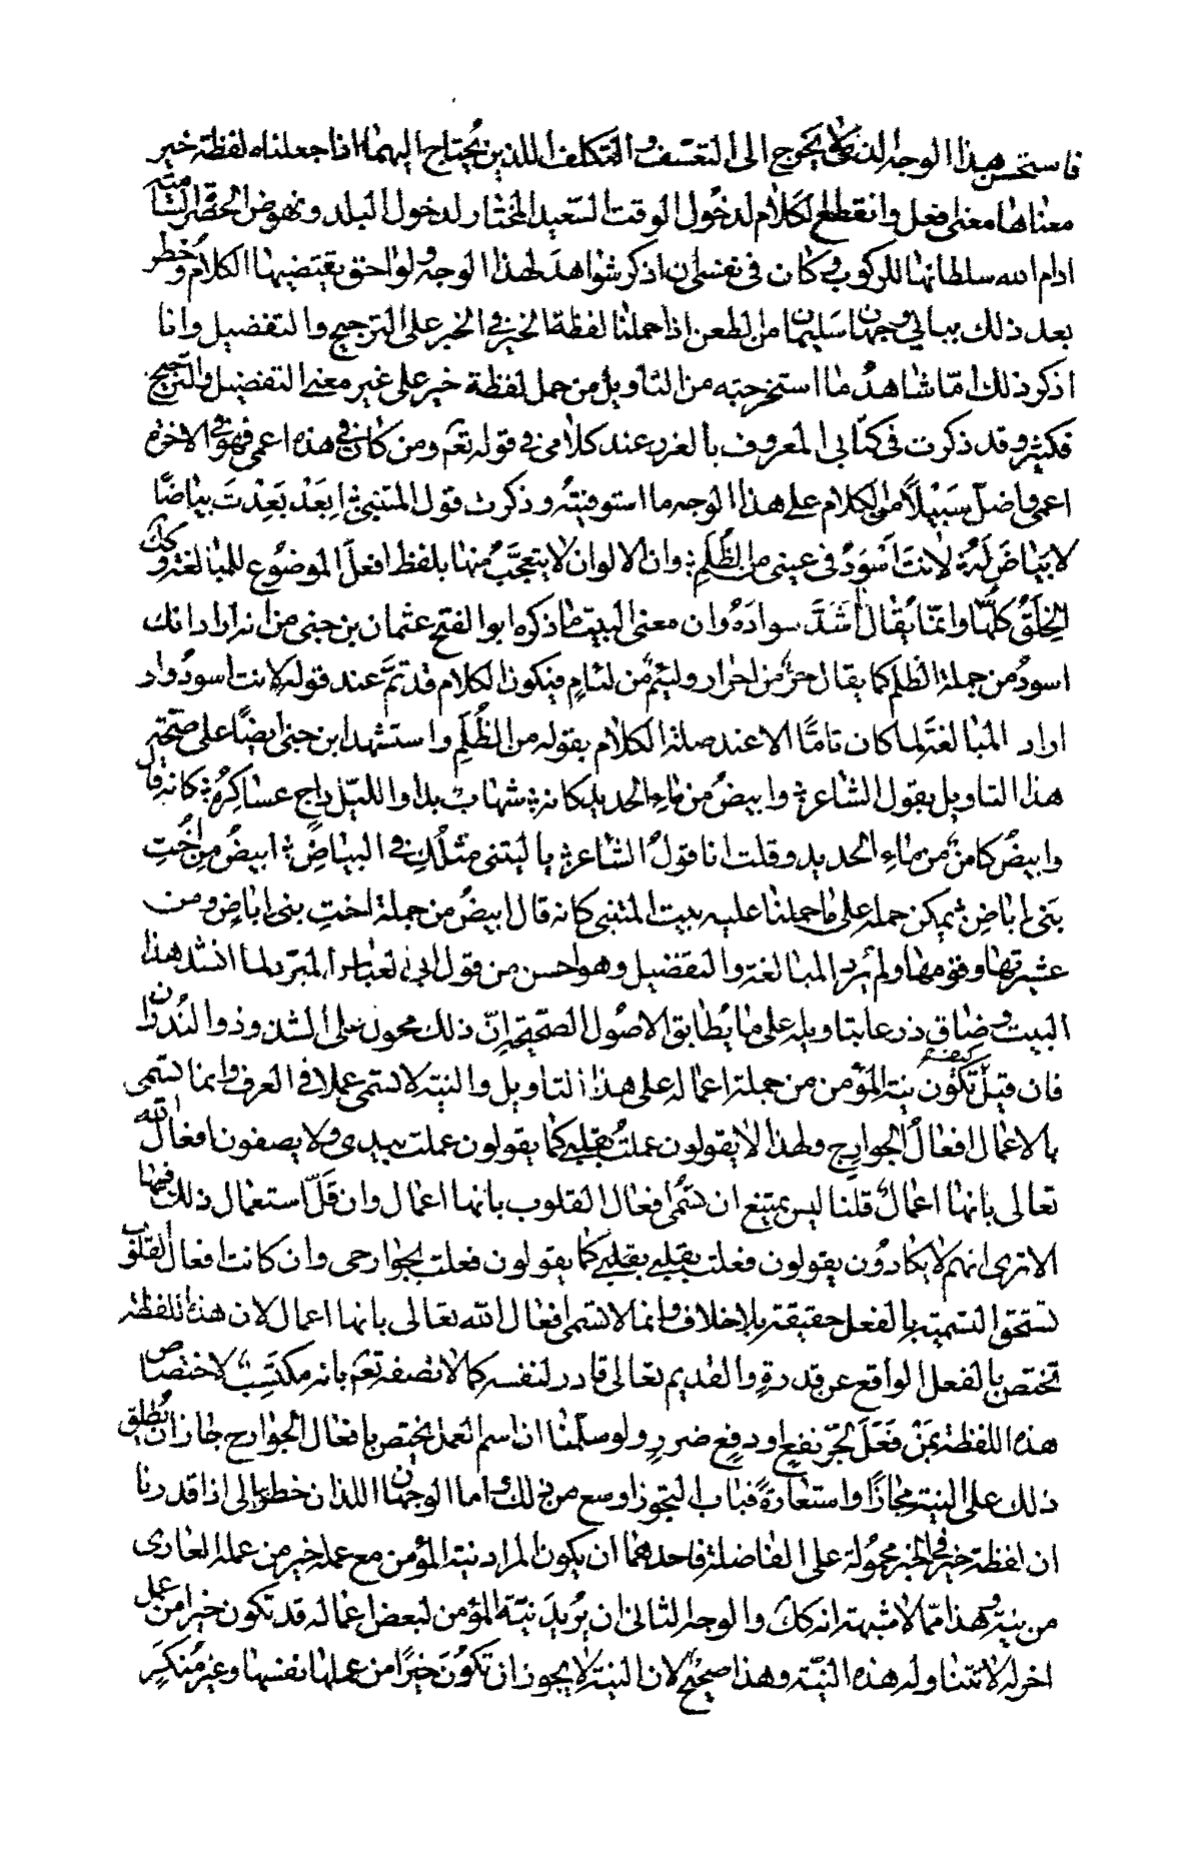 فاستحسن هذا الوجه الذي لا يحوج الى التعسف والتكلف اللذين يحتاج اليهما اذا جعلناه لفظة خير
معناها معنى افعل وانقطع الكلام لدخول الوقت السعيد المختار لدخول البلد ونهوض الحضرة السامية
ادام الله سلطانها للركوب وكان في نفسي ان اذكر شواهد لهذا الوجه ولواحق يقتضيها الكلام وخطر
بعد ذلك ببالي وجهان سليمان من الطعن اذا حملنا لفظة الخير في الخبر على الترجيح والتفضيل وانا
اذكر ذلك امّا شاهدُ ما استخرجته من التاويل من حمل لفظة خير على غير معنى التفضيل والترجيح
فكثير وقد ذكرت في كتابي المعروف بالغرر عند كلامي في قوله تعم ومن كان في هذه اعمى فهو في الاخرة
اعمى واضلّ سَبيْلاً من الكلام على هذا الوجه ما استوفيتُه وذكرت قول المتنبي؛ اِبعَدْ بَعِدْتَ بياضًا
لا بَيَاضَ لَهُ؛ لانتَ اَسْوَدُ في عيني من الظُّلَمِ؛ وان الالوان لا يتعجَّبُ منها بلفظ افعل الموضُوع للمبالغة وكك
الخِلَقُ كلُّها وانمّا يُقال اَشَدَّ سوادَهُ وان معنى البيت ما ذكره ابو الفتح عثمان بن جني من انه اراد انك
اسودُ من جملة الظلم كما يقال حرٌّ من احرار ولئيمٌ من لئامٍ فيكون الكلام قد تمَّ عند قوله لانت اسودُ ولو
اراد المبالغة لما كان تامًّا الا عند صلة الكلام بقوله من الظُّلَمِ واستشهد ابن جني ايضًا على صحّة
هذا التاويل بقول الشاعر؛ وابيضُ من ماءِ الحديد كانه؛ شهابٌ بدا والليّل داجٍ عساكرُهُ؛ كانه قال
وابيضُ كامنٌ من ماءِ الحديد وقلت انا قولُ الشاعر؛ يا ليتني مثلُكِ في البياضِ؛ ابيضُ من اُختِ
بَني اباضِ؛ يمكن حمله على ما حملنا عليه بيت المتنبي كانه قال ابيضُ من جملة اختِ بني اباضٍ ومن
عشيرتها وقومها ولم يُرد المبالغة والتفضيل وهو احسن من قول ابي العباس المبرّد لما انشد هذا
البيت وضاق ذرعا بتاويله على ما يُطابق الاصُول الصّحيحة انّ ذلك محمول على الشذوذ والندُران
فان قيل كيف تكُون نيّة المؤمن من جملة اعماله على هذا التاويل والنيّة لا تسمى عملا في العرف وانما تسمى
بالاعمال افعالُ الجوارح ولهذا لا يقولون عملتُ بقلبي كما يقولون عملت بيدي ولا يصفون افعال الله
تعالى بانها اعمالٌ قلنا ليس يمتنع ان تسُمّى افعال القلوب بانها اعمال وان قَلّ استعمال ذلك فيها
الا ترى انهم لا يكادُون يقولون فعلت بقلبي كما يقولون فعلت بجوارحي وان كانت افعال القلوب
تستحق التسمية بالفعل حقيقة بلا خلاف وانما لا تسمى افعال الله تعالى بانها اعمال لان هذه اللفظة
تختص بالفعل الواقع عن قدرةٍ والقديم تعالى قادر لنفسه كما لا نصفه تعم بانه مكتَسِبٌ لاختصاص
هذه اللفظة بمَنْ فَعَلَ لجرّ نفعٍ او دفعِ ضررٍ ولو سلّمنا ان اسم العمل يختص بافعال الجوارح جاز ان يُطلق
ذلك على النية مجازًا واستعارةً فباب التجوز اوسع من ذلك واما الوجهان اللذان خطرا ببالي اذا قدرنا
ان لفظة خير في الخبر محمُولة على الفاضلة فاحدهما ان يكون المراد نية المؤمن مع عمله خير من عمله العاري
من نيّة وهذا ممّا لا شبهة انه كك والوجه الثاني ان يُريدَ نيّة المؤمن لبعض اعماله قد تكون خيرا من عمل
اخر له لا تتناوله هذه النيّة وهذا صحيحٌ لان النية لا يجوز ان تكُونَ خيرًا من عملها نفسها وغير مُنكَرِ